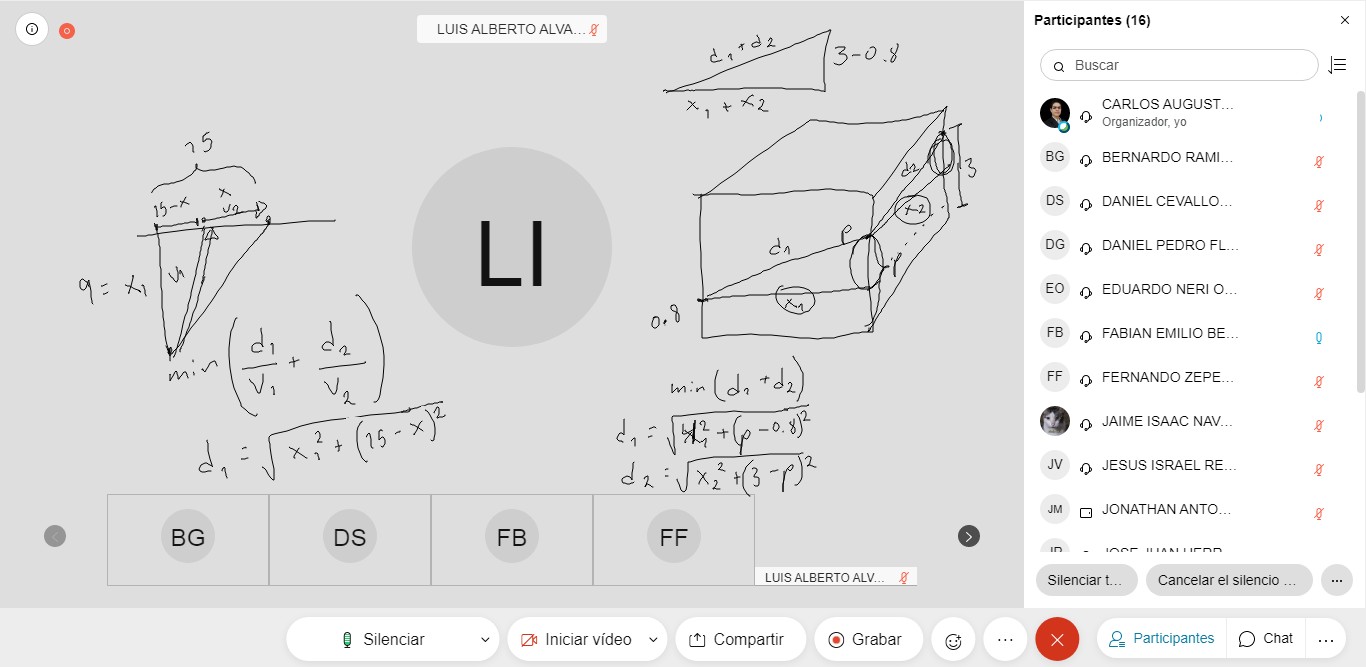 LUIS ALBERTO ALVA...
d₁+d₂
3-0.8
x₁ + x₂
15
15-x
x
v₂
v₁
9 = x₁
min (d₁/v₁ + d₂/v₂)
d₁ = √(x₁² + (15-x)²)
LI
d₂
3
x₂
p
d₁
p
x₁
0.8
min (d₁+d₂)
d₁ = √(x₁² + (p-0.8)²)
d₂ = √(x₂² + (3-p)²)
BG
DS
FB
FF
LUIS ALBERTO ALV...
Participantes (16)
Buscar
CARLOS AUGUST...
Organizador, yo
BG BERNARDO RAMI...
DS DANIEL CEVALLO...
DG DANIEL PEDRO FL...
EO EDUARDO NERI O...
FB FABIAN EMILIO BE...
FF FERNANDO ZEPE...
JAIME ISAAC NAV...
JV JESUS ISRAEL RE...
JM JONATHAN ANTO...
Silenciar t... Cancelar el silencio ...
Silenciar Iniciar vídeo Compartir Grabar Participantes Chat